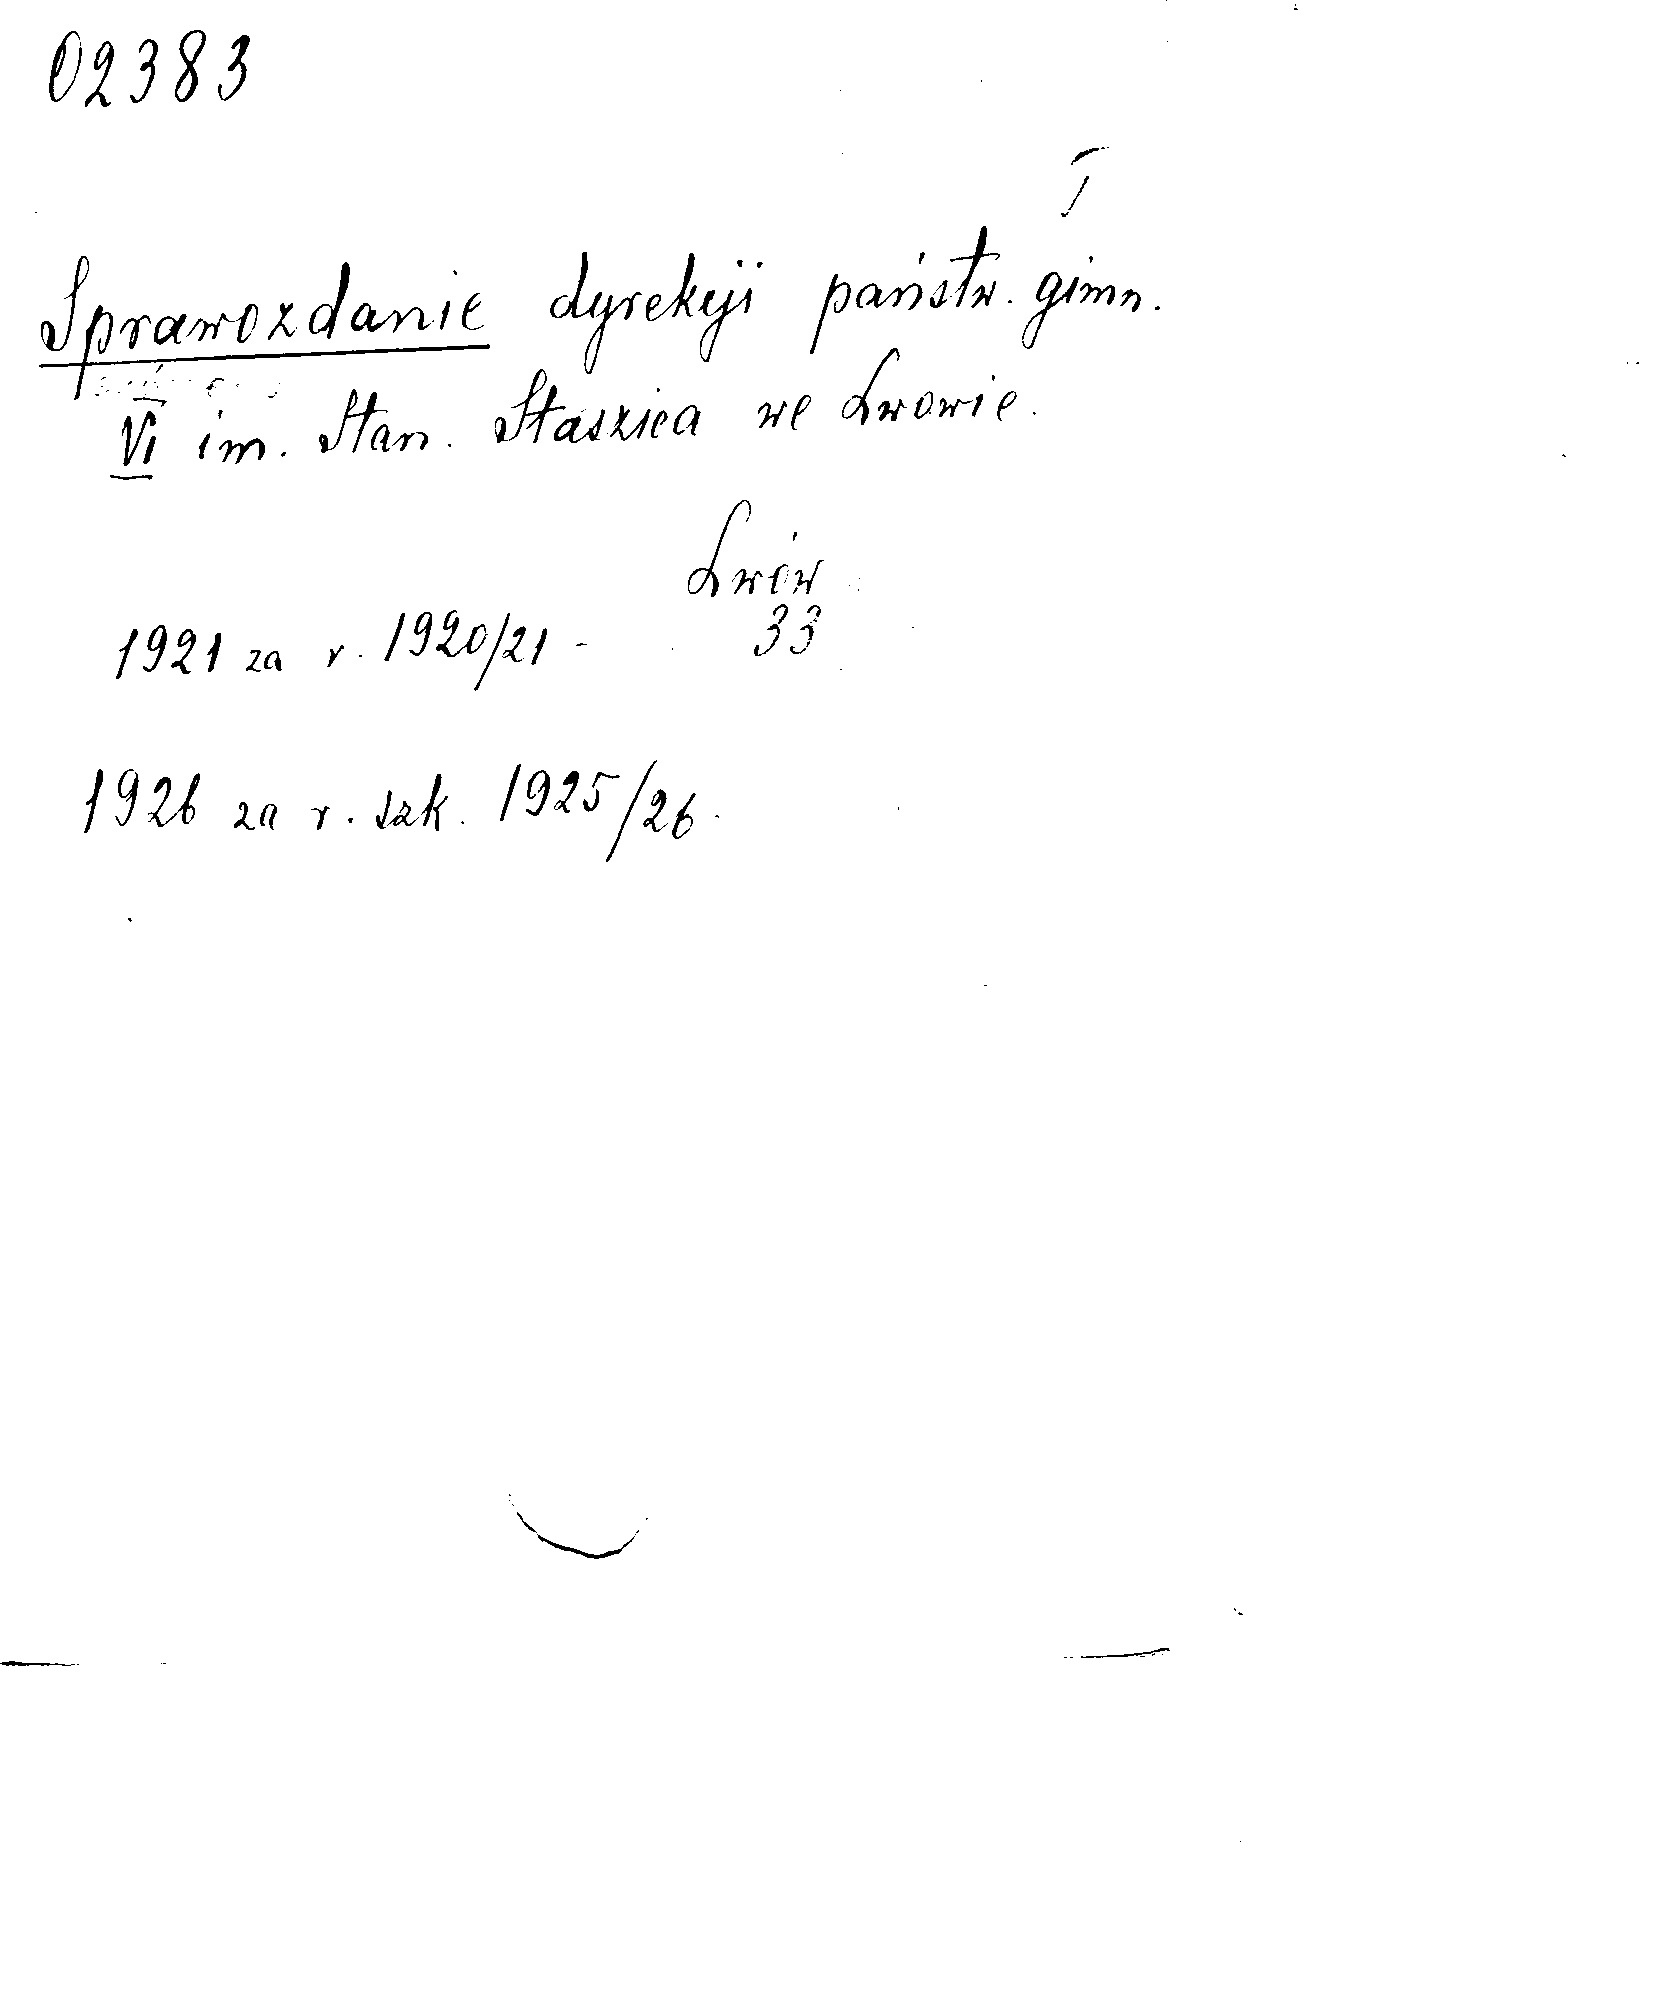 02383
I
Sprawozdanie dyrekcji państw. gimn.
VI im. Stan. Staszica we Lwowie.
Lwów
1921 za r. 1920/21 - 33
1926 za r. szk. 1925/26.